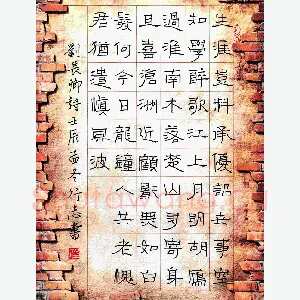 生涯豈料承優詔世事空
知學醉歌江上月明胡鴈
過淮南木落楚山多寄身
且喜滄洲近顧影無如白
髮何今日龍鐘人共老愧
君猶遣慎風波
劉長卿詩壬辰孟冬行志書